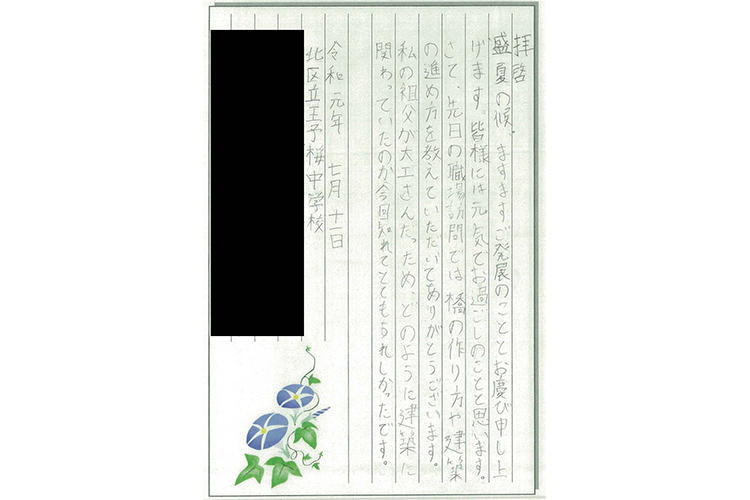 拝啓
盛夏の候、ますますご発展のこととお慶び申し上
げます。皆様には元気でお過ごしのことと思います。
さて、先日の職場訪問では橋の作り方や建築
の進め方を教えていただいてありがとうございます。
私の祖父が大工さんだっため、どのように建築に
関わっていたのか今回知れてとてもうれしかったです。
令和元年 七月十一日
北区立王子桜中学校